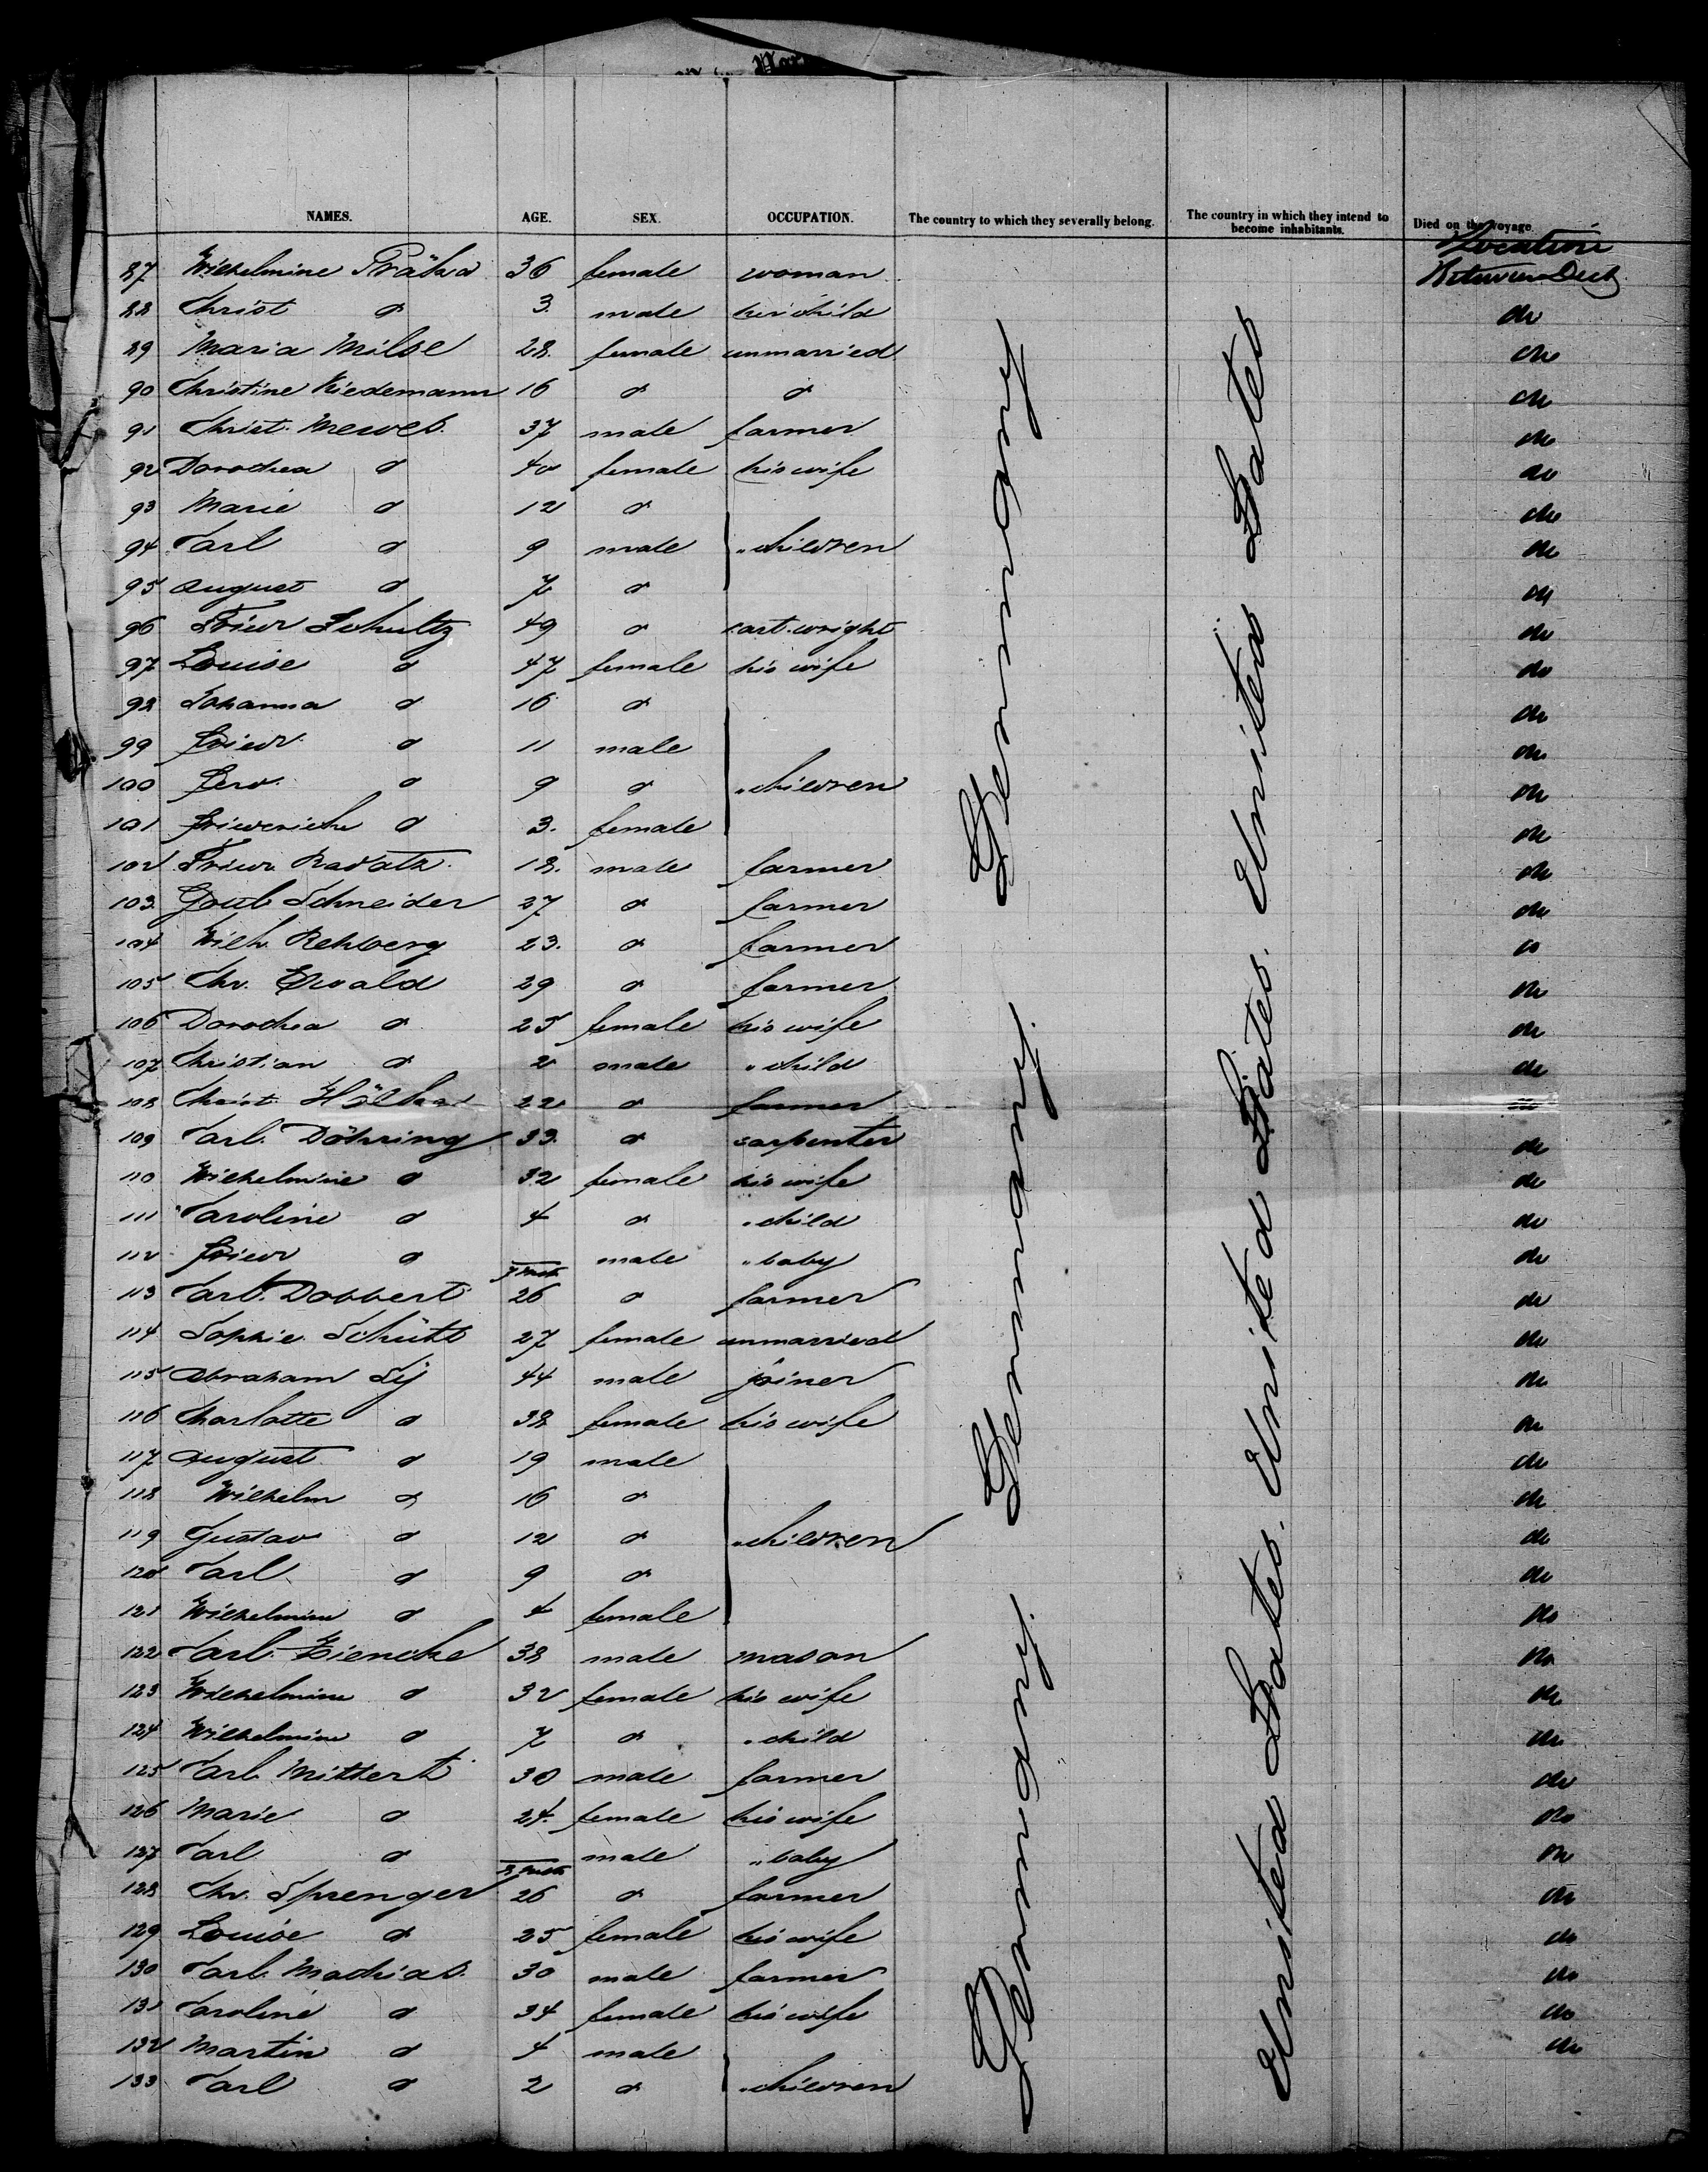 NAMES. AGE. SEX. OCCUPATION. The country to which they severally belong. The country in which they intend to become inhabitants. Died on the voyage.
Location
87 Wilhelmine 36 female woman Between Deck
88 Christ d 3. male her child do
89 Maria Milse 28. female unmarried do
90 Christine Wiedemann 16 d d do
91 Christ. Mewes. 37 male farmer do
92 Dorothea d 40 female his wife do
93 Marie d 12 d do
94 Carl d 9 male " children do
95 August d 7 d do
96 Friedr Schultz 49 d cart-wright do
97 Louise d 47 female his wife do
98 Johanna d 16 d do
99 Friedr. d 11 male do
100 Ferd. d 9 d " children do
101 Friederich d 3. female do
102 Friedr. Radatz. 18. male farmer do
103. Gottl Schneider 27 d farmer do
104 Wilh. Rehberg 23. d farmer do
105 Chr. Ewald 29 d farmer do
106 Dorothea d 25 female his wife do
107 Christian d 2 male " child do
108 Christ. 22 d farmer do
109 Carl. Döhring 33. d carpenter do
110 Wilhelmine d 32 female his wife do
111 Caroline d 4 d " child do
112 Friedr d male " baby do
113 Carl. Dobbert 26 d farmer do
114 Sophie Schütt 27 female unmarried do
115 Abraham 44 male joiner do
116 Charlotte d 38 female his wife do
117 August d 19 male do
118 Wilhelm d 16 d do
119 Gustav d 12 d " children do
120 Carl d 9 d do
121 Wilhelmine d 4 female do
122 CarlZiencke 38 male mason do
123 Wilhelmine d 32 female his wife do
124 Wilhelmine d 7 d " child do
125 Carl Mittert 30 male farmer do
126 Marie d 24. female his wife do
127 Carl d male " baby do
128 Chr. Sprenger 26 d farmer do
129 Louise d 25 female his wife do
130 Carl. Mathias. 30 male farmer do
131 Caroline d 34 female his wife do
132 Martin d 4 male do
133 Carl d 2 d " children
Germany. Germany. Germany. Germany
United States. United States. United States. United States